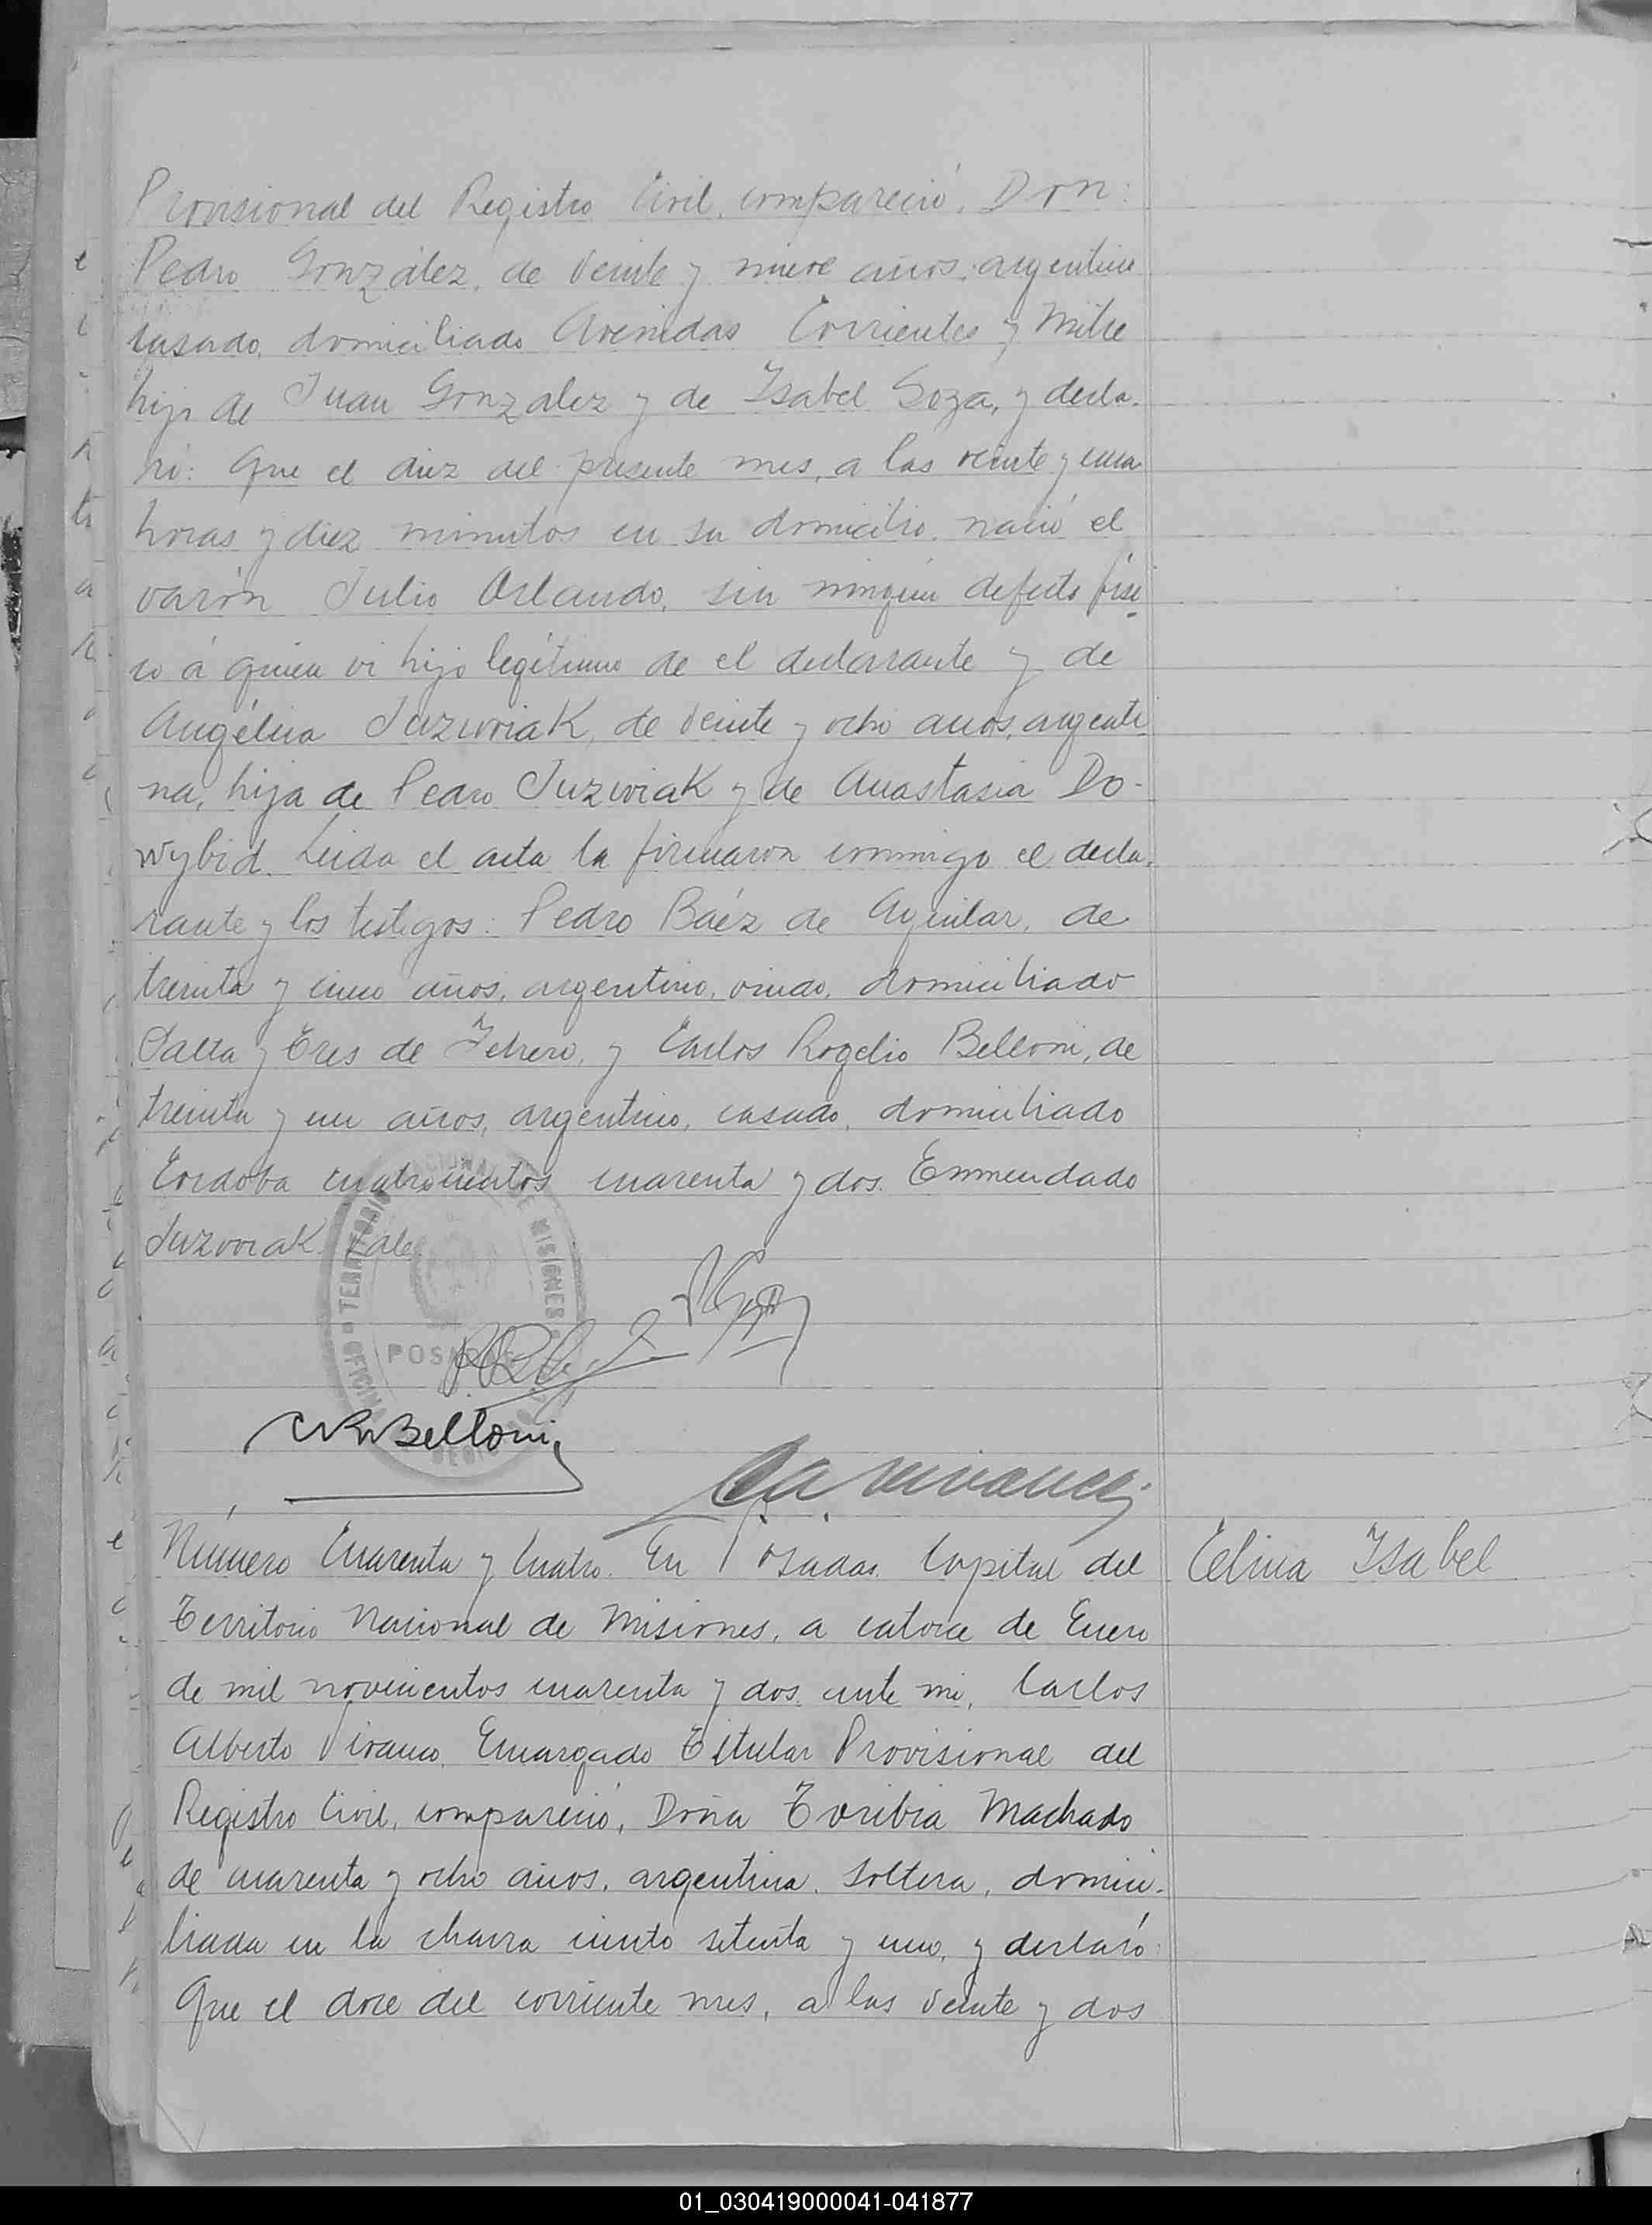 Provisional del Registro Civil, compareció, Don:
Pedro González, de veinte y nueve años, argentino
casado, domiciliado Avenidas Corrientes y Mitre
hijo de Juan Gonzalez y de Isabel Soza, y decla-
ró: Que el diez del presente mes, a las veinte y una
horas y diez minutos en su domicilio nació el
varón Julio Orlando, sin ningún defecto físi
co á quien vi hijo legítimo de el declarante y de
Angélica Juzwiak, de veinte y ocho años, argenti
na, hija de Pedro Juzwiak y de Anastasia Do-
wybid. Leida el acta la firmaron conmigo el decla-
rante y los testigos: Pedro Báez de Aguilar, de
treinta y cinco años, argentino, viudo, domiciliado
Salta y Tres de Febrero, y Carlos Rogelio Belloni, de
treinta y un años, argentino, casado, domiciliado
Córdoba cuatrocientos cuarenta y dos. Enmendado
Juzwiak. Vale.
TERRITORIO NACIONAL DE MISIONES
POSADAS
CRBelloni
Número Cuarenta y Cuatro. En Posadas Capital del
Celina Isabel
Territorio Nacional de Misiones, a catorce de Enero
de mil novecientos cuarenta y dos, ante mi, Carlos
Alberto Vivanco, Encargado Titular Provisional del
Registro Civil, compareció, Doña Toribia Machado
de cuarenta y ocho años, argentina, soltera, domici-
liada en la chacra ciento setenta y uno, y declaró:
Que el doce del corriente mes, a las veinte y dos
01_030419000041-041877